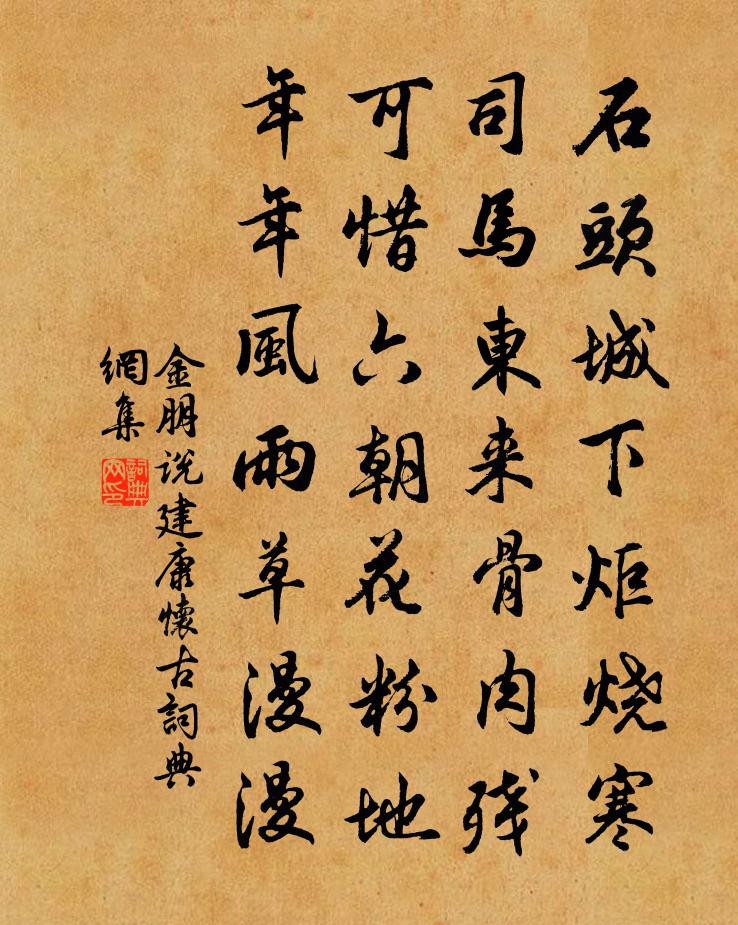 石頭城下炬烧寒
司馬東来骨肉残
可惜六朝花粉地
年年風雨草漫漫
金朋说建康懷古詞典
網集
詞典
网印